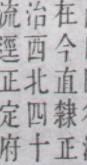 在今直隸正
治西北四十
流逕正定府